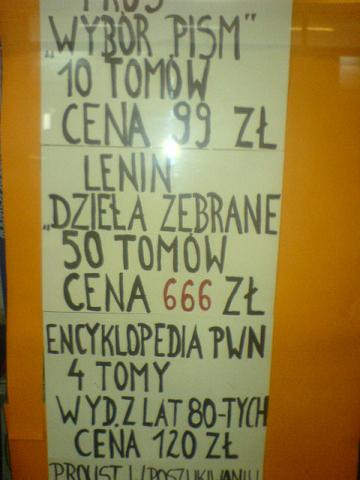 PRUS
„WYBÓR PISM"
10 TOMÓW
CENA 99 ZŁ
LENIN
„DZIEŁA ZEBRANE
50 TOMÓW
CENA 666 ZŁ
ENCYKLOPEDIA PWN
4 TOMY
WYD. Z LAT 80-TYCH
CENA 120 ZŁ
PROUST „W POSZUKIWANIU